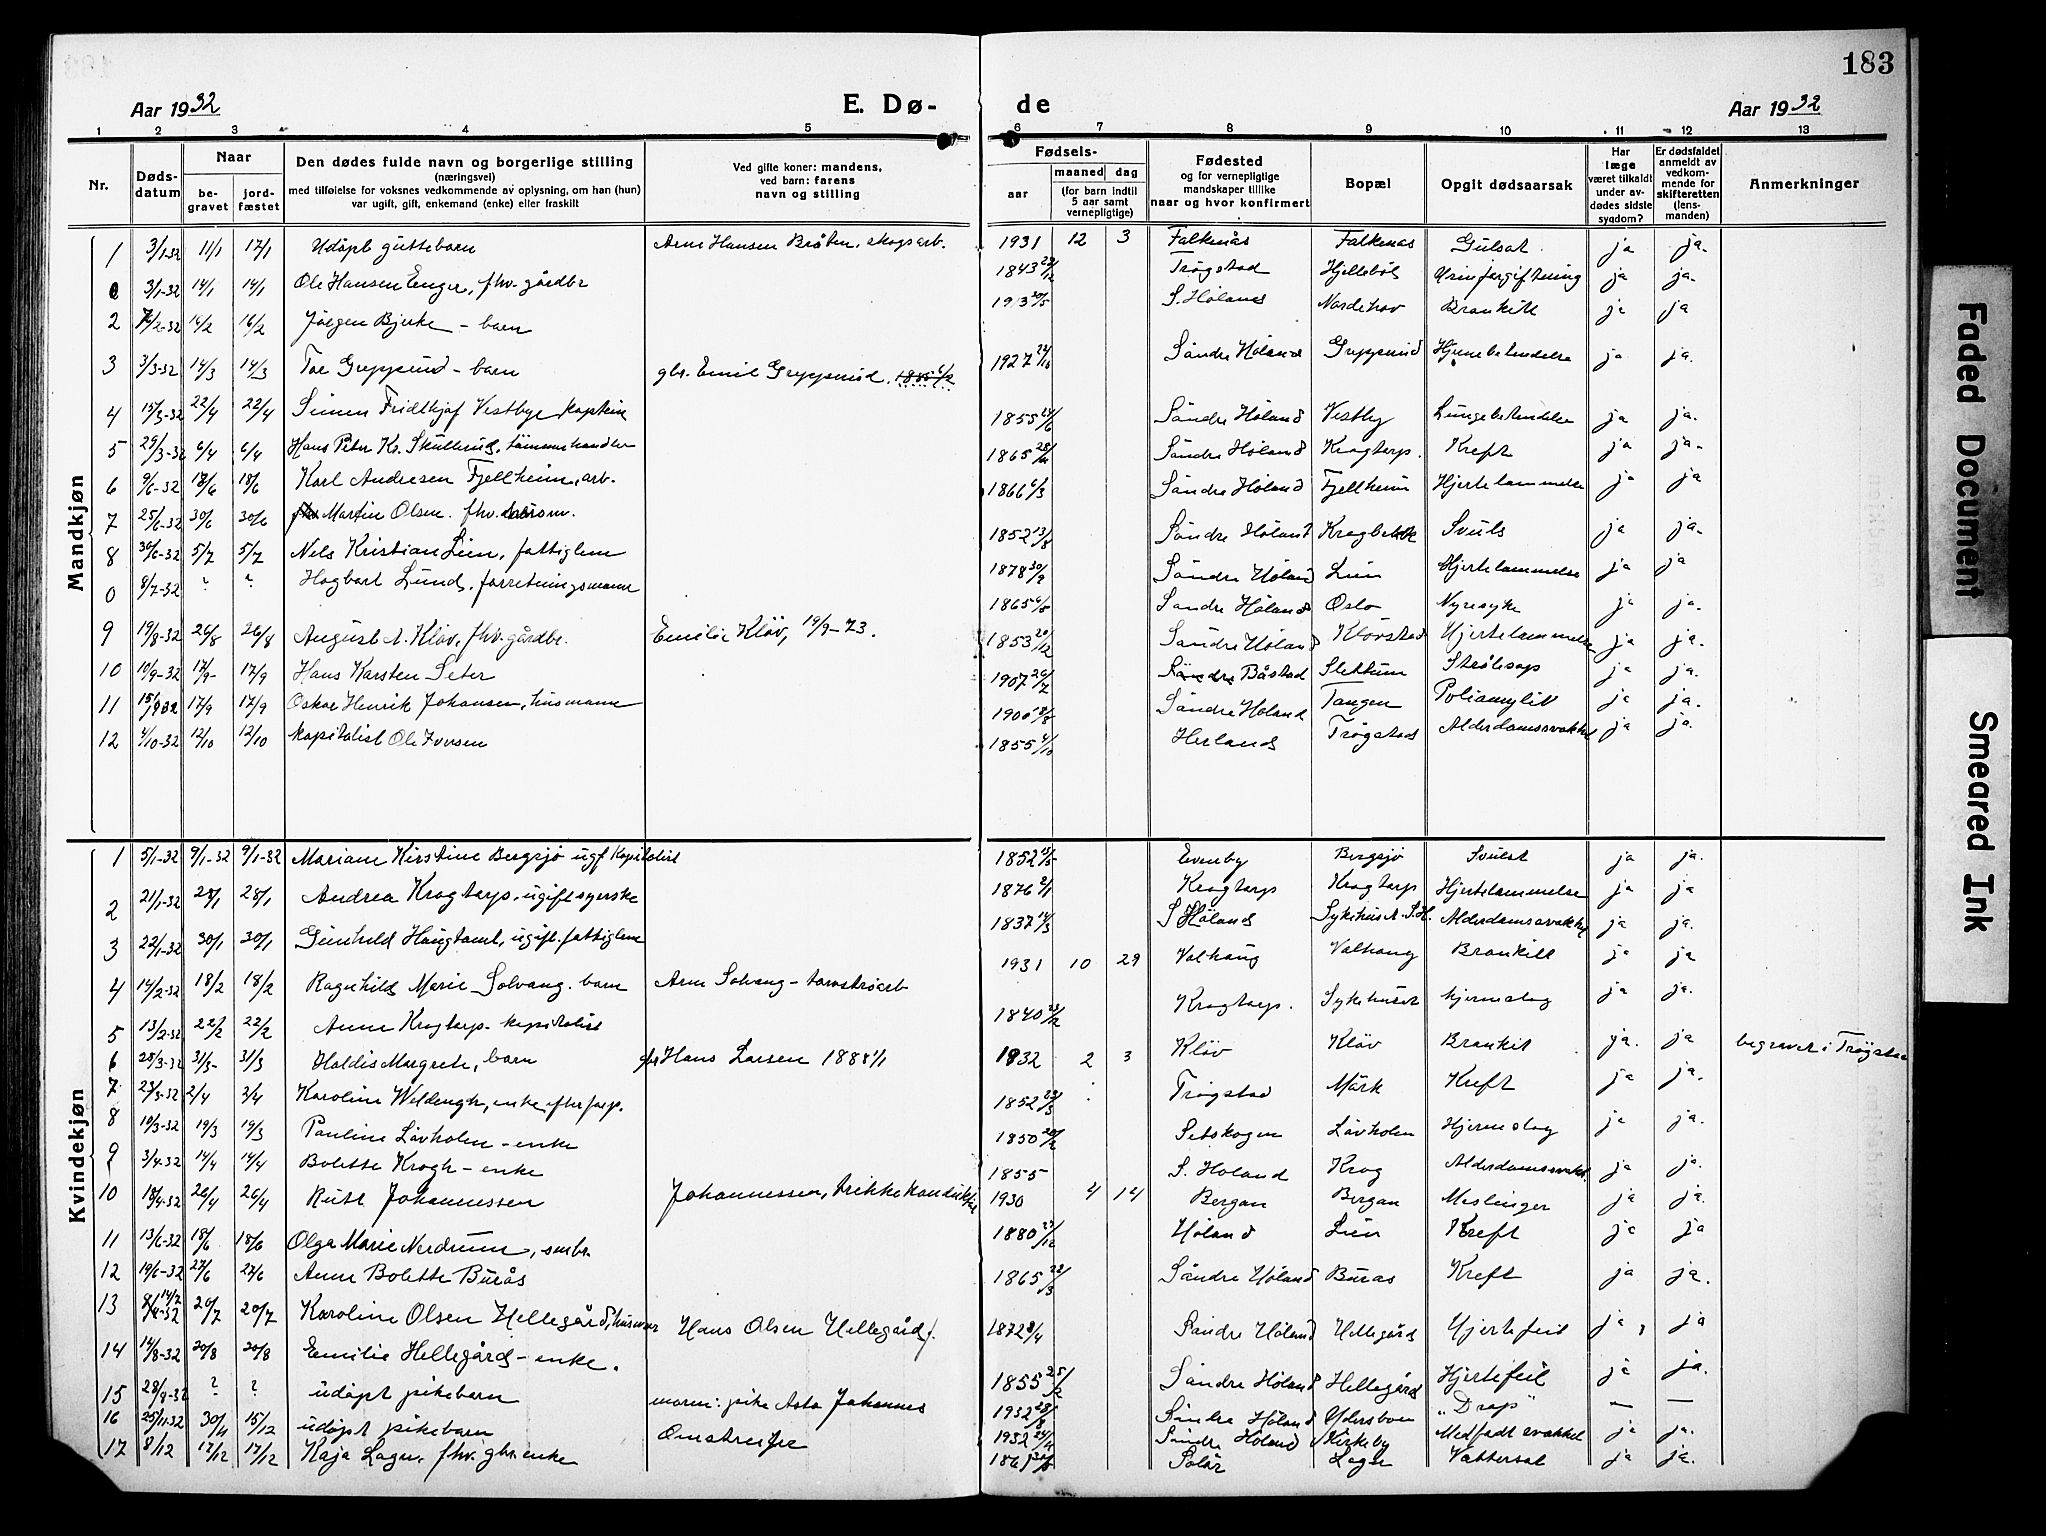 183
Aar 1932 E. Dø- de Aar 1932
1 2 3 4 5 6 7 8 9 10 11 12 13
Nr.
Døds-datum
Naar
be-gravet
jord-fæstet
Den dødes fulde navn og borgerlige stilling
(næringsvei)
med tilføielse for voksnes vedkommende av oplysning, om han (hun)
var ugift, gift, enkemand (enke) eller fraskilt
Ved gifte koner: mandens,
ved barn: farens
navn og stilling
Fødsels-
aar
maaned dag
(for barn indtil
5 aar samt
vernepligtige)
Fødested
og for vernepligtige
mandskaper tillike
naar og hvor konfirmert
Bopæl
Opgit dødsaarsak
Har
læge
været tilkaldt
under av-
dødes sidste
sygdom?
Er dødsfaldet
anmeldt av
vedkom-
mende for
skifteretten
(lens-
manden)
Anmerkninger
Mandkjøn
1 3/1-32 11/1 17/1 Udøpt guttebarn Arne Hansen Bråten, skogsarb. 1931 12 3 Falkenås Falkenås Gulsot ja ja.
3/1-32 14/1 14/1 Ole Hansen Enger, fhv. gårdbr 1843 Trøgstad Hjellebøl Urinforgiftning ja ja.
2 14/2 16/2 Jørgen Bjerke - barn S. Høland Nordehov Bronkitt ja ja
3 3/3-32 14/3 14/3 Tor Grepperud - barn gbr. Emil Grepperud, 1927 Søndre Høland Grepperud ja ja.
4 15/3-32 22/4 22/4 Simen Fridthjof Vestby, kaptein 1855 Søndre Høland Vestby Lungebetendelse ja ja.
5 29/3-32 6/4 6/4 Hans Peter Kr. Skullerud, tømmerhandler 1865 Søndre Høland Krogtorp. Kreft ja ja.
6 9/6-32 18/6 18/6 Karl Andresen Fjellheim, arb. 1866 6/3 Søndre Høland Fjellheim Hjertelammelse ja ja
7 25/6-32 30/6 30/6 Martin Olsen. fhv. 1852 13/8 Søndre Høland Svuls ja ja.
8 30/6-32 5/7 5/7 Nels Kristian Lien, fattiglem 1878 30/9 Søndre Høland Lien Hjertelammelse ja ja
0 8/7-32 ? ? Hagbart Lund, forretningsmann 1865 Søndre Høland Oslo Nyresyke ja ja.
9 19/8-32 26/8 26/8 August A. Kløv, fhv. gårdbr. Emilie Kløv, 19/9-73. 1853 20/12 Søndre Høland Kløvstad Hjertelammelse ja ja.
10 10/9-32 17/9- 17/9 Hans Karsten Seter 1907 26/7 Søndre Båstad Slettum ja ja.
11 17/9 17/9 Oskar Henrik Johansen, husmann 1900 Søndre Høland Tangen Poliomylit ja ja.
12 4/10-32 12/10 12/10 Kapitalist Ole Iversen 1855 4/10 Herland Trøgstad Alderdomssvakhet ja ja.
Kvindekjøn
1 5/1-32 9/1-32 9/1-32 Mariane Kirstine Bergsjø ugf Kapitalist 1852 Evenby Bergsjø Svulst ja ja.
2 21/1-32 28/1 28/1 Andrea Krogtorp, ugift syerske 1876 2/1 Krogtorp Krogtorp Hjertelammelse ja ja
3 22/1-32 30/1 30/1 Gunhild Haugtomt, ugift. fattiglem 1837 14/3 S Høland Sykehuset. S.H. Alderdomssvakhet ja ja.
4 14/2-32 18/2 18/2 Ragnhild Marie Solvang. barn Arne Solvang - torvstrøarb 1931 10 29 Valhaug Valhaug Bronkitt ja ja
5 13/2-32 22/2 22/2 Anne Krogtorp - kapitalist 1840 23/2 Krogtorp. Sykehuset hjerneslag ja ja.
6 28/3-32 31/3- 31/3 Haldis Margrete, barn gbr Hans Larsen 1888 1/1 1932 2 3 Kløv Kløv Bronkit ja. ja begravet i Trøgstad
7 23/3-32 2/4 2/4 Karoline Weldengh, enke 1852 23/3 Trøgstad Mørk Kreft ja ja.
8 10/3-32 19/3 19/3 Pauline Løvholen - enke 1850 20/2 Setskogen Løvholen Hjerneslag ja ja.
9 3/4-32 14/4 14/4 Bolette Krogh - enke 1855 S. Høland Krog Alderdomssvakh. ja ja.
10 18/4-32 26/4 26/4 Rutt Johannessen Johannessen, trikkekonduktør 1930 4 14 Bergan Bergan Meslinger ja ja.
11 13/6-32 18/6 18/6 Olga Marie Nordrum, småbr. 1880 Høland Lien Kreft ja ja
12 19/6-32 27/6 27/6 Anne Bolette Burås 1865 23/3 Søndre Høland Burås Kreft ja ja.
13 14/7 20/7 20/7 Karoline Olsen Hellegård, husmor Hans Olsen Hellegård. 1872 8/4 Søndre Høland Hellegård Hjertefeil ja, ja
14 14/8-32 20/8 20/8 Emilie Hellegård - enke. 1855 25/2 Søndre Høland Hellegård Hjertefeil ja ja.
15 28/8-32 ? ? udøpt pikebarn moren: pike Asta Johannes 1932 28/8 Søndre Høland „Drap" — —
16 25/11-32 30/11 15/12 udøpt pikebarn 1932 Søndre Høland Kirkeby Medfødt svakhet ja ja.
17 8/12 17/12 17/12 Kaja Lager, fhv. gbr. enke Solør Lager Vattersot ja ja.
Faded Document
Smeared Ink